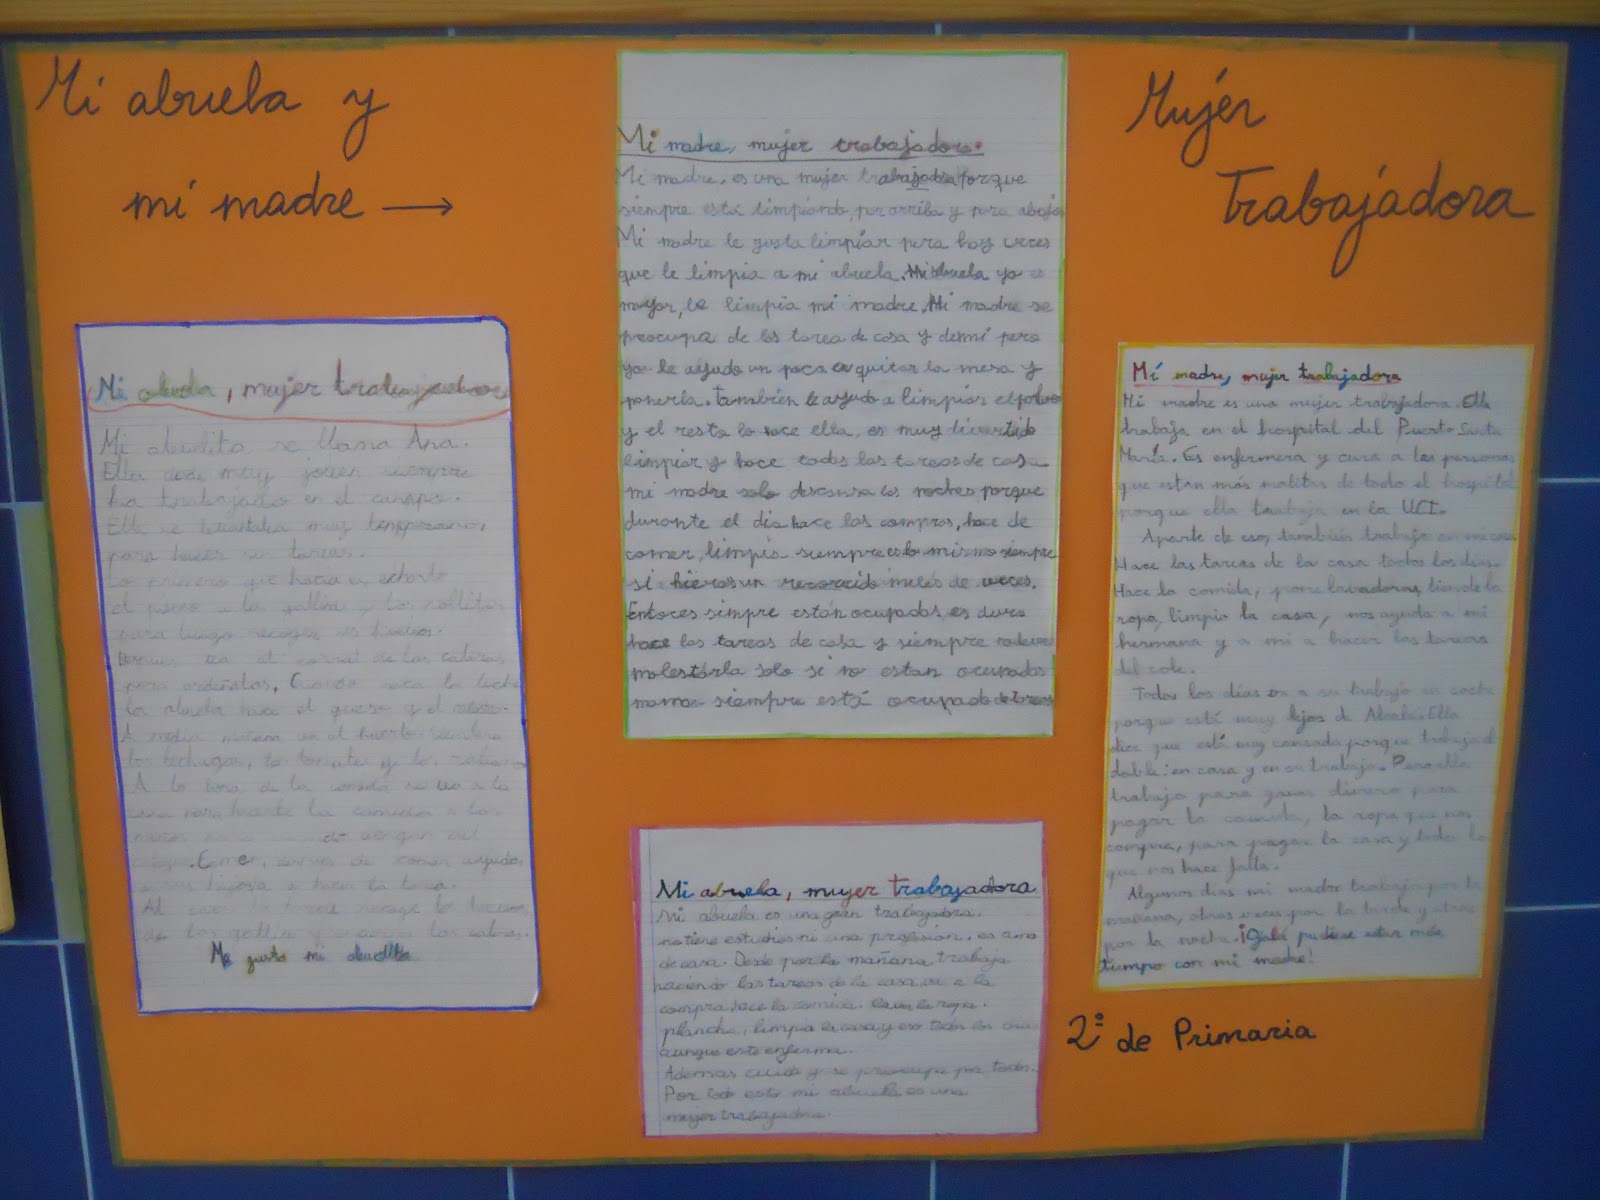 Mi abuela y
mi madre →
Mujer
Trabajadora
Mi abuela, mujer trabajadora
Mi abuelita se llama Ana.
Ella desde muy joven siempre
ha trabajado en el campo.
Ella se levantaba muy temprano,
para hacer sus tareas.
Lo primero que hacia es echarle
el pienso a las gallinas y los pollitos
para luego recoger los huevos.
Despues iba al corral de las cabras
para ordeñalas. Cuando saca la leche
la abuela hace el queso y el
A media mañana en el huerto siembra
las lechugas, los tomates y los
A la hora de la comida se va a la
casa para hacerle la comida a
vengan del
Comer, despues de comer ayuda
a hacer la tarea.
Al caer la tarde recoge los huevos
de las gallinas y las cabras.
Me gusta mi abuelita
Mi madre, mujer trabajadora.
Mi madre, es una mujer trabajadora porque
siempre está limpiando, por arriba y por abajo
Mi madre le gusta limpiar pero hay veces
que le limpia a mi abuela. Mi abuela ya es
mayor, le limpia mi madre. Mi madre se
preocupa de las tarea de casa y de mi pero
yo le ayudo un poco a quitar la mesa y
ponerla. También le ayudo a limpiar el polvo
y el resto lo hace ella, es muy divertido
limpiar y hace todas las tareas de casa
mi madre solo descansa las noches porque
durante el dia hace las compras, hace de
comer, limpia siempre es lo mismo siempre
si hieras un recorrido miles de veces.
Entoces simpre están ocupadas es duro
hace las tareas de casa y siempre no debes
molestárla solo si no estan ocupadas
mama siempre está ocupada
Mi abuela, mujer trabajadora
Mi abuela es una gran trabajadora.
no tiene estudios ni una profesión, es ama
de casa. Desde por la mañana trabaja
haciendo las tareas de la casa, va a la
compra, hace la comida, lava la ropa,
plancha, limpia la casa y eso todos los dias
aunque este enferma.
Ademas cuida y se preocupa por todos.
Por todo esto mi abuela es una
mujer trabajadora.
Mi madre, mujer trabajadora
Mi madre es una mujer trabajadora. Ella
trabaja en el hospital del Puerto Santa
María. Es enfermera y cura a las personas
que estan más malitas de todo el hospital
porque ella trabaja en la UCI.
Aparte de eso, también trabaja en mi casa
Hace las tareas de la casa todos los dias.
Hace la comida, pone lavadoras, tiende la
ropa, limpia la casa, nos ayuda a mi
hermana y a mi a hacer las tareas
del cole.
Todos los dias va a su trabajo en coche
porque está muy lejos de Alcalá. Ella
dice que está muy cansada porque trabaja el
doble: en casa y en su trabajo. Pero ella
trabaja para ganar dinero para
pagar la comida, la ropa que nos
compra, para pagar la casa y todo lo
que nos hace falta.
Algunos dias mi madre trabaja por la
mañana, otras veces por la tarde y otras
por la noche. ¡Ojalá pudiese estar más
tiempo con mi madre!
2º de Primaria